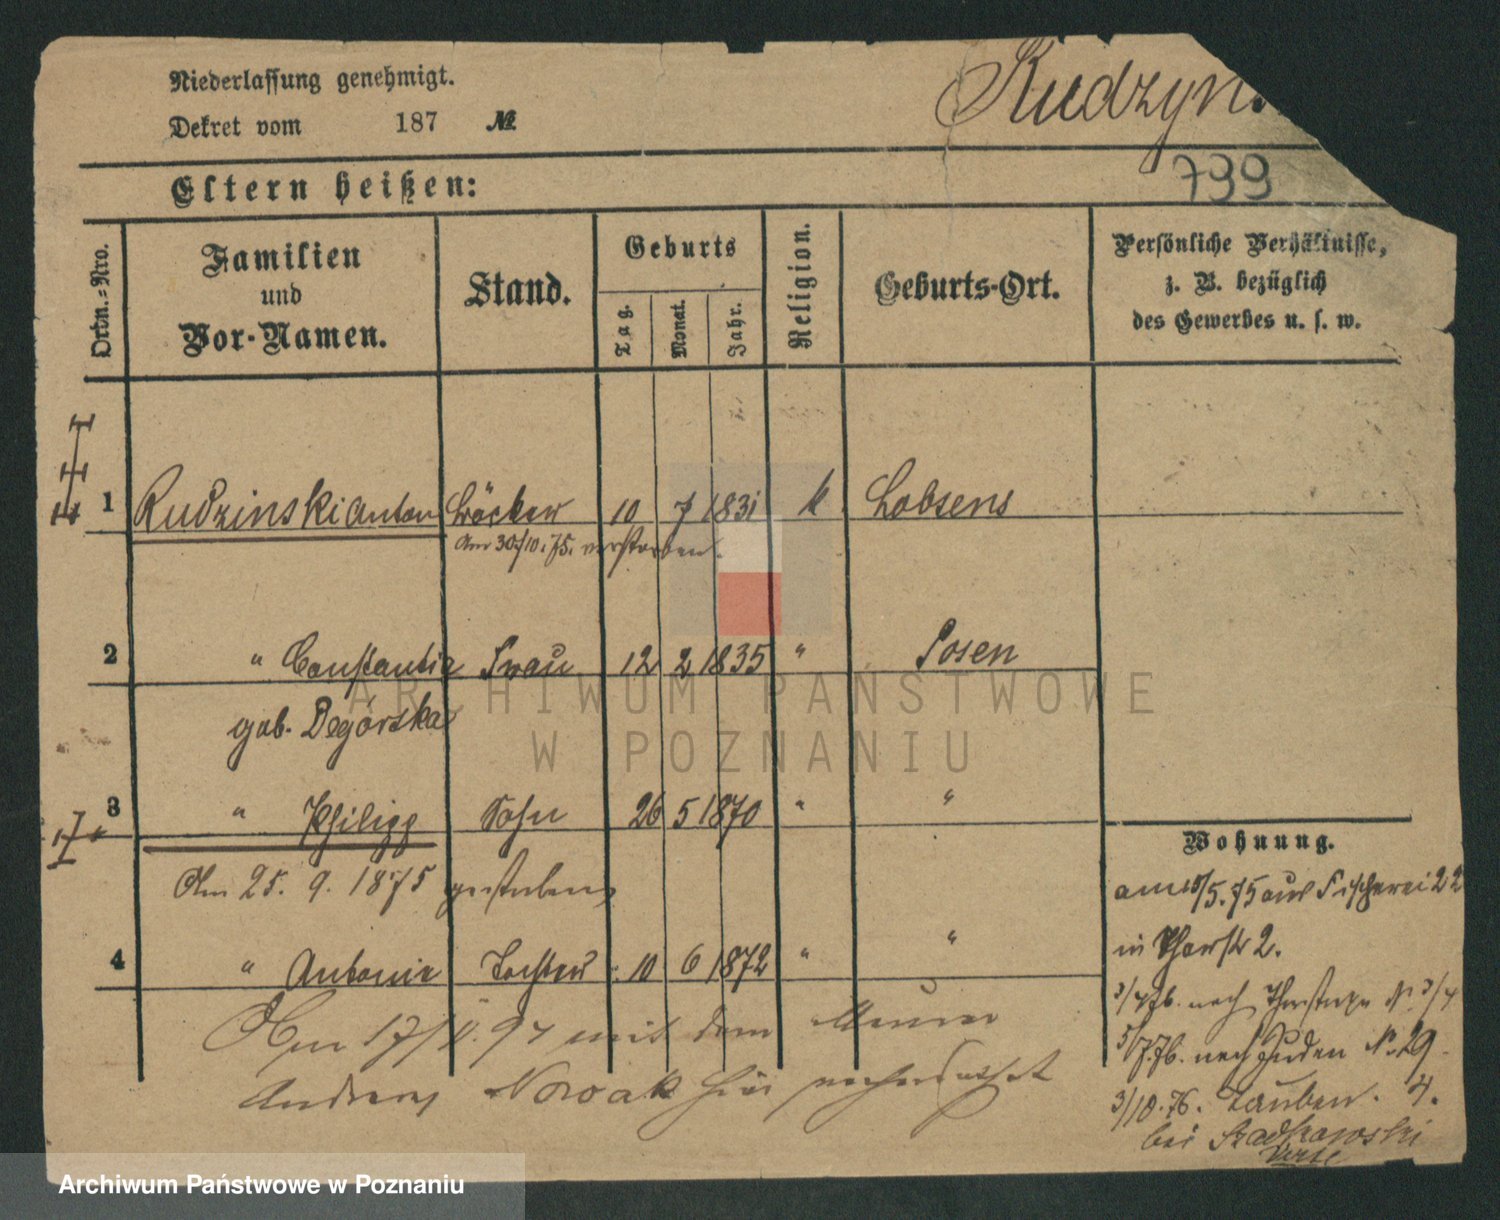 Niederlassung genehmigt.
Dekret vom 187 №
Rudzyn
799
Eltern heißen:
Ordn.-Nro.
Familien
und
Vor-Namen.
Stand.
Geburts
Tag.
Monat.
Jahr.
Religion.
Geburts-Ort.
Persönliche Verhältnisse,
z. B. bezüglich
des Gewerbes u. s. w.
1 Rudzinski Anton Böcker 10 7 1831 k Lobsens
Am 30/10.75. verstorben.
2 " Constantia Frau 12 2 1835 " Posen
geb. Degórska
3 " Philipp Sohn 26 5 1870 " "
Am 25. 9. 1875 gestorben
4 " Antonie Tochter 10 6 1872 " "
Am 17/11.97 mit dem Maurer
Andreas Nowak hier verheirathet
Wohnung.
am 15/5.75 aus Fischerei 22
in Thorstr 2.
3/4 76. nach Thorstraße № 3/4
5/7.76. nach Juden №. 29.
3/10.76. Tauben. 4.
bei Szadkowski
Verte
ARCHIWUM PAŃSTWOWE
W POZNANIU
Archiwum Państwowe w Poznaniu